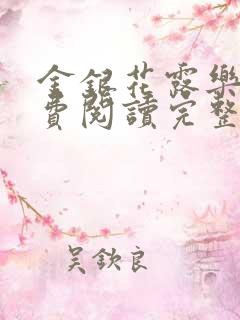 金銀花露樂
費閱讀完整
吴欽良